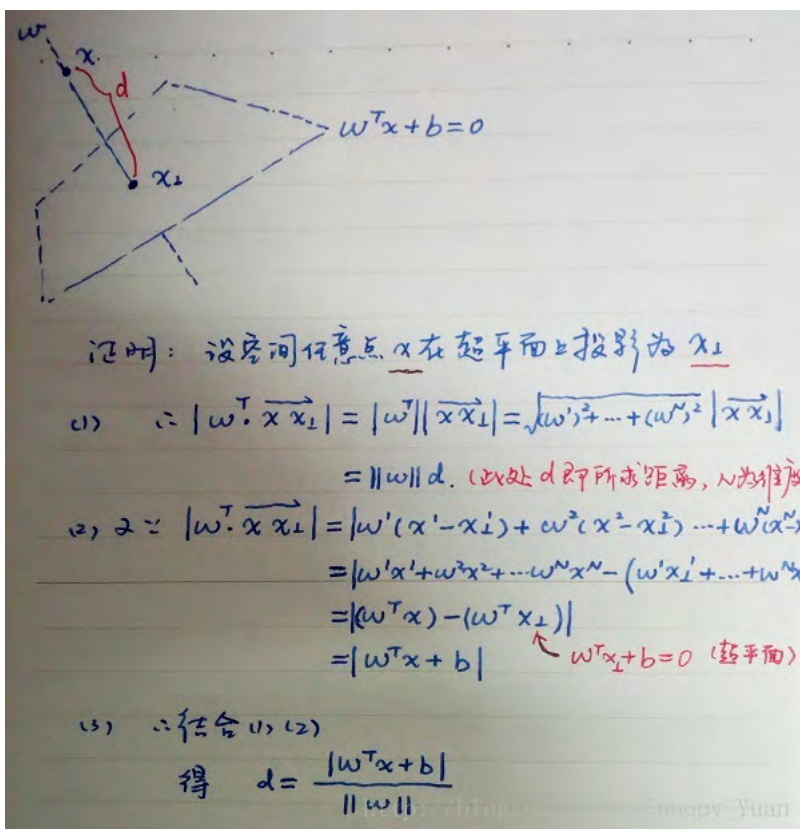 w
x
d
x⊥
wᵀx+b=0
证明：设空间任意点 x 在超平面上投影为 x⊥
(1) ∴ |wᵀ·xx⊥| = |wᵀ||xx⊥| = √(w¹)²+…+(wᴺ)² |xx⊥|
= ||w||d. (此处 d 即所求距离, N为维度
(2) 又∵ |wᵀ·xx⊥| = |w¹(x¹-x⊥¹) + w²(x²-x⊥²) …+wᴺ(xᴺ-x
= |w¹x¹+w²x²+…wᴺxᴺ-(w¹x⊥¹+…+wᴺx
= |(wᵀx)-(wᵀx⊥)|
= |wᵀx+b| wᵀx⊥+b=0 (超平面)
(3) ∴结合(1)(2)
得 d = |wᵀx+b| / ||w||